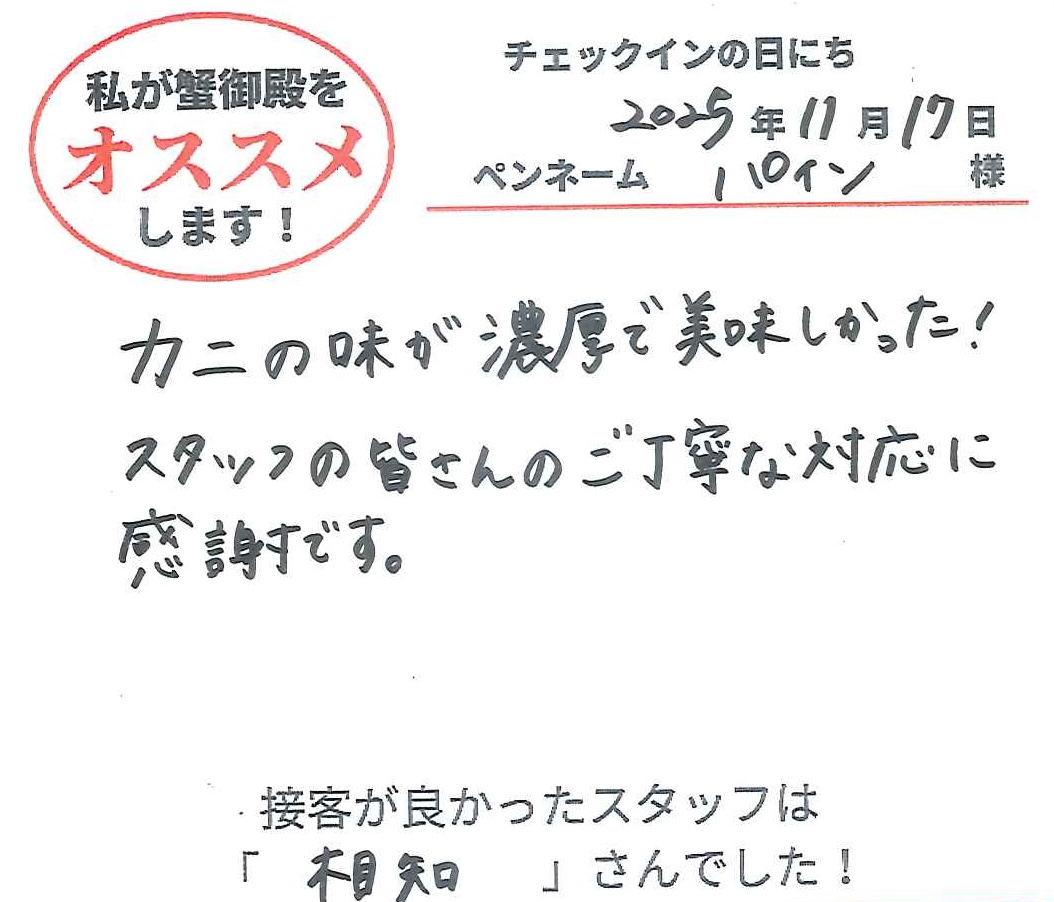 私が蟹御殿を
オススメ
します！
チェックインの日にち
2025年11月17日
ペンネーム パイン 様
カニの味が濃厚で美味しかった！
スタッフの皆さんのご丁寧な対応に
感謝です。
接客が良かったスタッフは
「 相知 」さんでした！